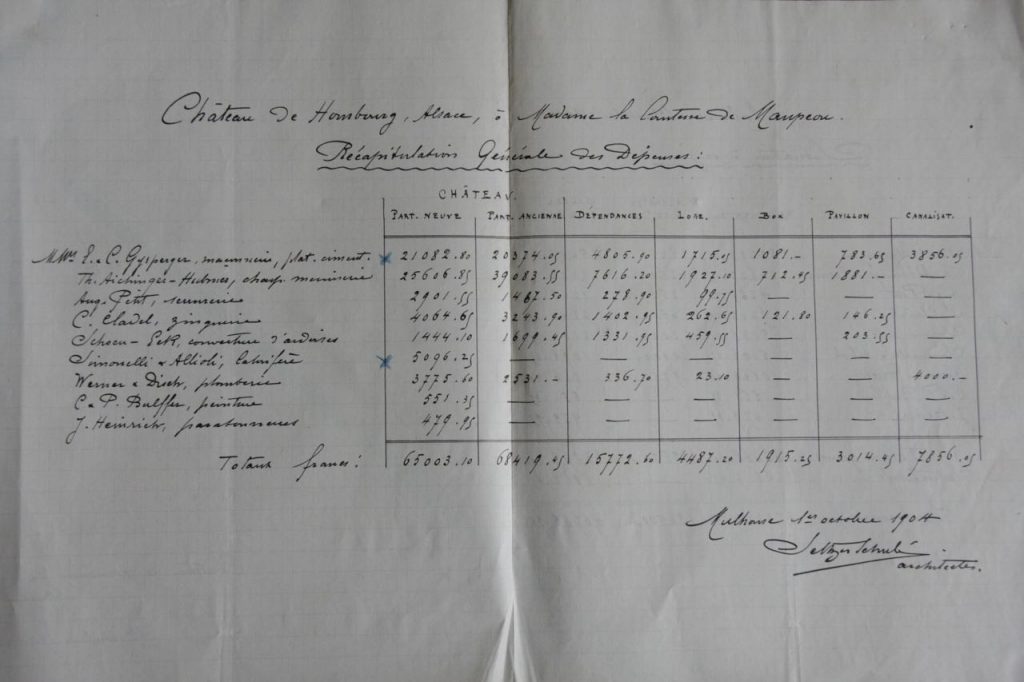 Château de Hombourg, Alsace, à Madame la Comtesse de Maupeou.
Récapitulation Générale des Dépenses:
CHÂTEAU.
PART. NEUVE PART. ANCIENNE DÉPENDANCES LOGE. BOX PAVILLON CANALISAT.
MMrs E. & C. Gysperger, maçonnerie, plat. ciment. 21082.80 20374.05 4805.90 1715.05 1081.- 783.65 3856.05
Th. Aichinger-Helmer, charp. menuiserie 25606.85 39083.55 7616.20 1927.10 712.45 1881.- —
Aug. Petit, serrurerie 2901.55 1487.50 278.90 99.75 — — —
C. Cladel, zinguerie 4064.65 3243.90 1402.95 262.65 121.80 146.25 —
Schoen-Eck, couverture d'ardoises 1444.10 1699.45 1331.95 459.55 — 203.55 —
Simonelli & Allioli, calorifère 5096.25 — — — — — —
Werner & Disch, plomberie 3775.60 2531.- 336.70 23.10 — — 4000.-
C. & P. Bulffer, peinture 551.35 — — — — — —
J. Heinrich, paratonnerres 479.95 — — — — — —
Totaux francs: 65003.10 68419.45 15772.60 4487.20 1915.25 3014.45 7856.05
Mulhouse 1er octobre 1904
architectes.